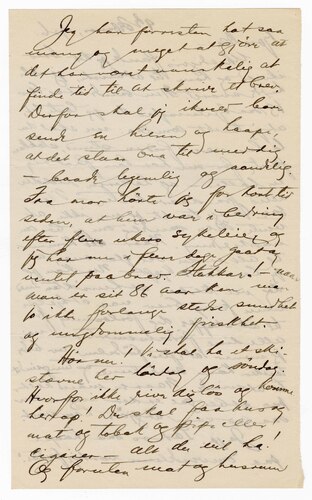 Jeg har forresten hat saa
mang og meget at gjøre at
det har været umulig at
finde tid til at skrive et brev.
Derfor skal jeg ikveld bare
sende en hilsen og haape,
at det staar bra til med dig
— baade legemlig og aandelig.
Fra mor hørte jeg for kort tid
siden, at hun var i bedring
efter flere ukers sykeleie, og
jeg har nu i flere dage paany
ventet paa brev. Stakkar! — naar
man er sit 86 aar kan ma
jo ikke forlange stedse sundhet
og ungdommelig friskhet.
Hør nu! Vi skal ha et ski-
stevne her lørdag og søndag.
Hvorfor ikke rive dig løs og komme
herop! Du skal faa husrog
mat og tobak og pipe eller
cigarer — alt der vil ha!
Og foruten mat og husrum